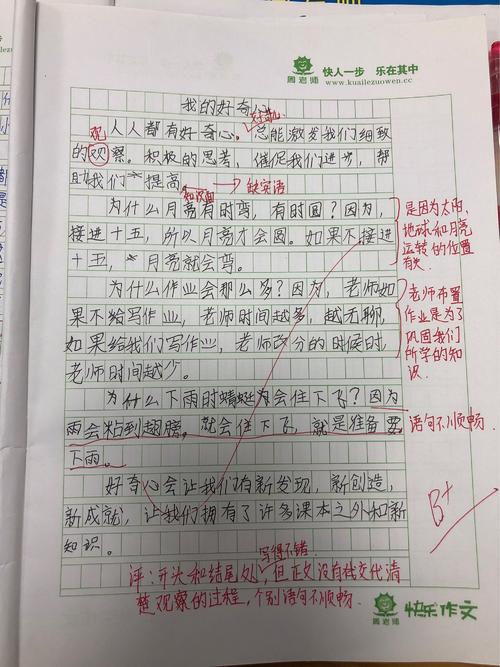 周老师
快人一步 乐在其中
www.kuailezuowen.cc
我的好奇心
好奇心
观
人人都有好奇心。总能激发我们细致
的观察。积极的思考，催促我们进步，帮
助我们 提高
知识面
缺宾语
为什么月亮有时弯，有时圆？因为，
接进十五，所以月亮才会圆。如果不接进
十五，月亮就会弯。
是因为太阳、
地球和月亮
运转的位置
有关
为什么作业会那么多？因为，老师如
果不给写作业，老师时间越多，越无聊，
如果给我们写作业，老师改分的时候时，
老师时间越少。
老师布置
作业是为了
巩固我们
所学的知
识
为什么下雨时蜻蜓为会住下飞？因为
雨会粘到翅膀，就会住下飞，就是准备要
下雨。
语句不顺畅
好奇心会让我们有新发现，新创造，
新成就，让我们拥有了许多课本之外和新
知识。
B+
写得不错
评：开头和结尾处，但正文没有交代清
楚观察的过程，个别语句不顺畅。
周老师
快乐作文